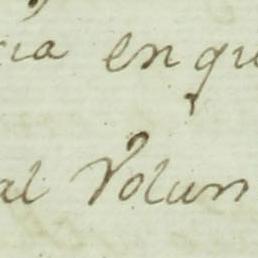 cia en qu
al Volun